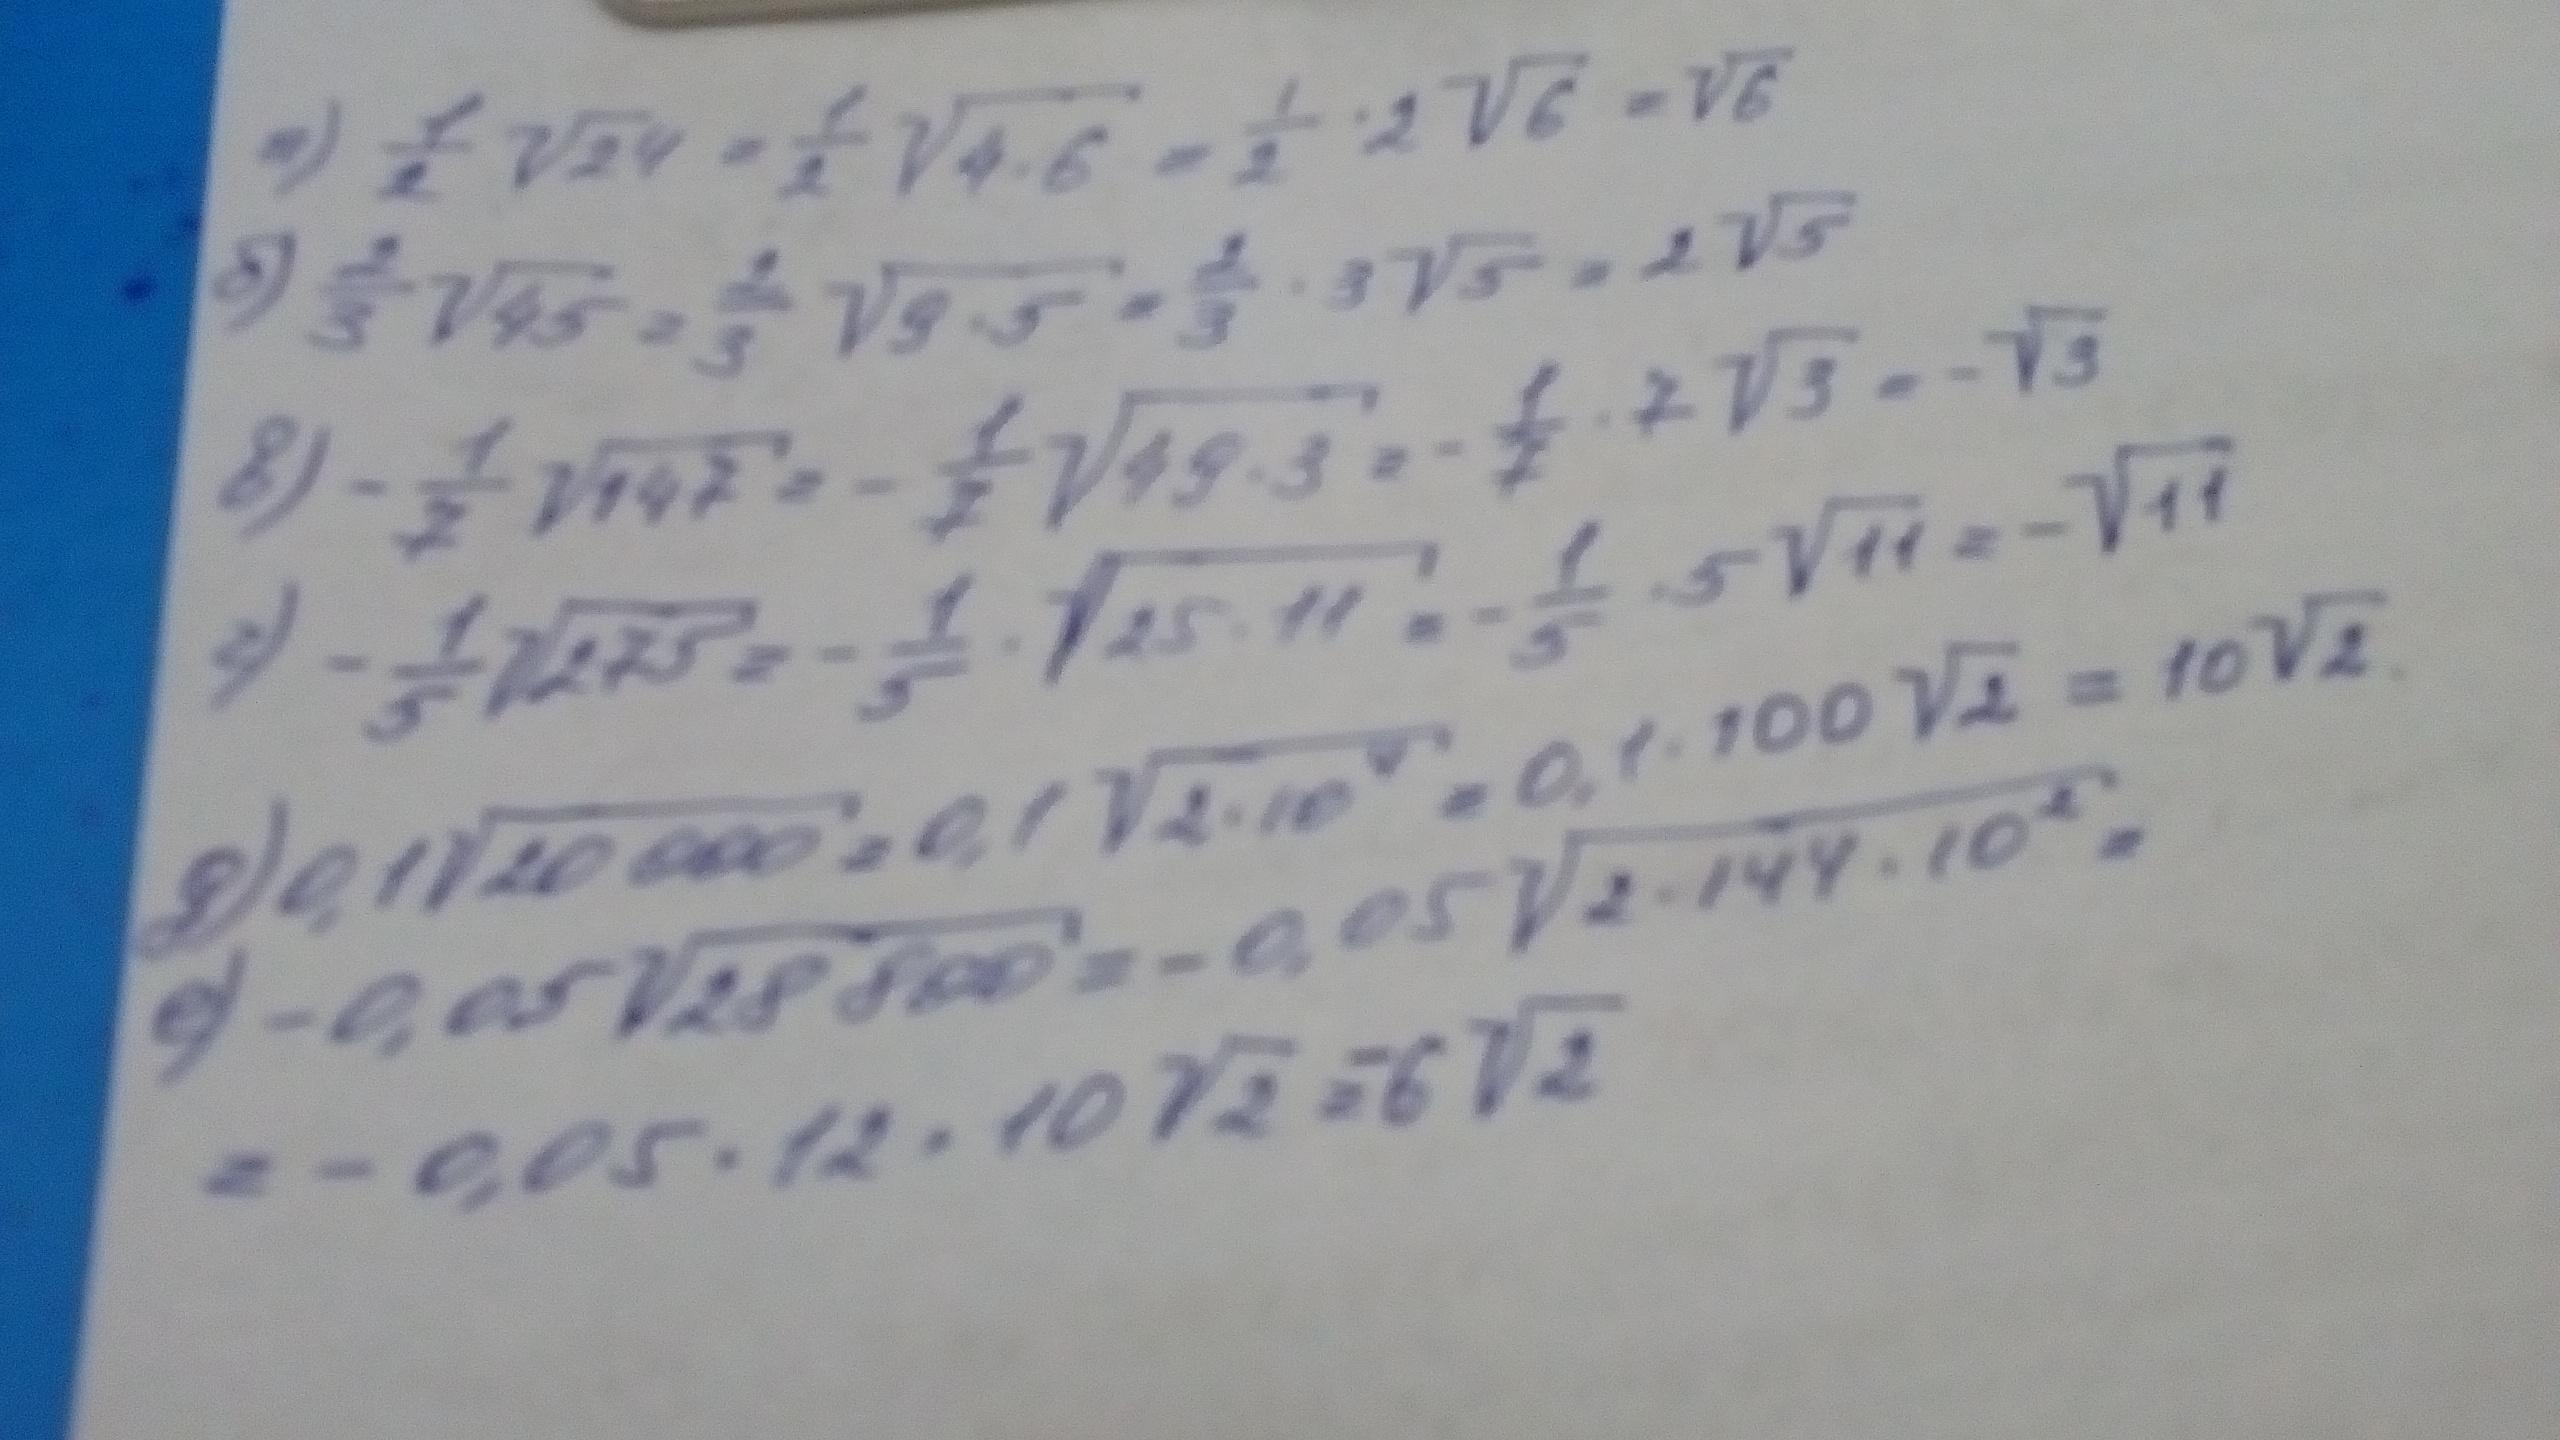 а) 1/2 √24 = 1/2 √(4·6) = 1/2 · 2√6 = √6
б) 2/3 √45 = 2/3 √(9·5) = 2/3 · 3√5 = 2√5
в) - 1/7 √147 = - 1/7 √(49·3) = - 1/7 · 7√3 = -√3
г) - 1/5 √275 = - 1/5 · √(25·11) = - 1/5 · 5√11 = -√11
д) 0,1√20 000 = 0,1√(2·10⁴) = 0,1·100√2 = 10√2
е) -0,05√28 800 = -0,05√(2·144·10²) =
= -0,05·12·10√2 = -6√2